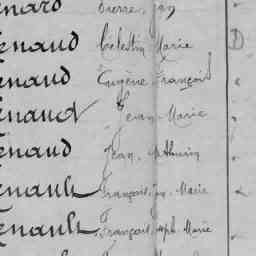 enard Pierre Jan
enaud Célestin Marie D
enaud Eugène François
enaud Jean Marie
enaud Jean Mathurin
enault François Marie
enault François Joseph Marie